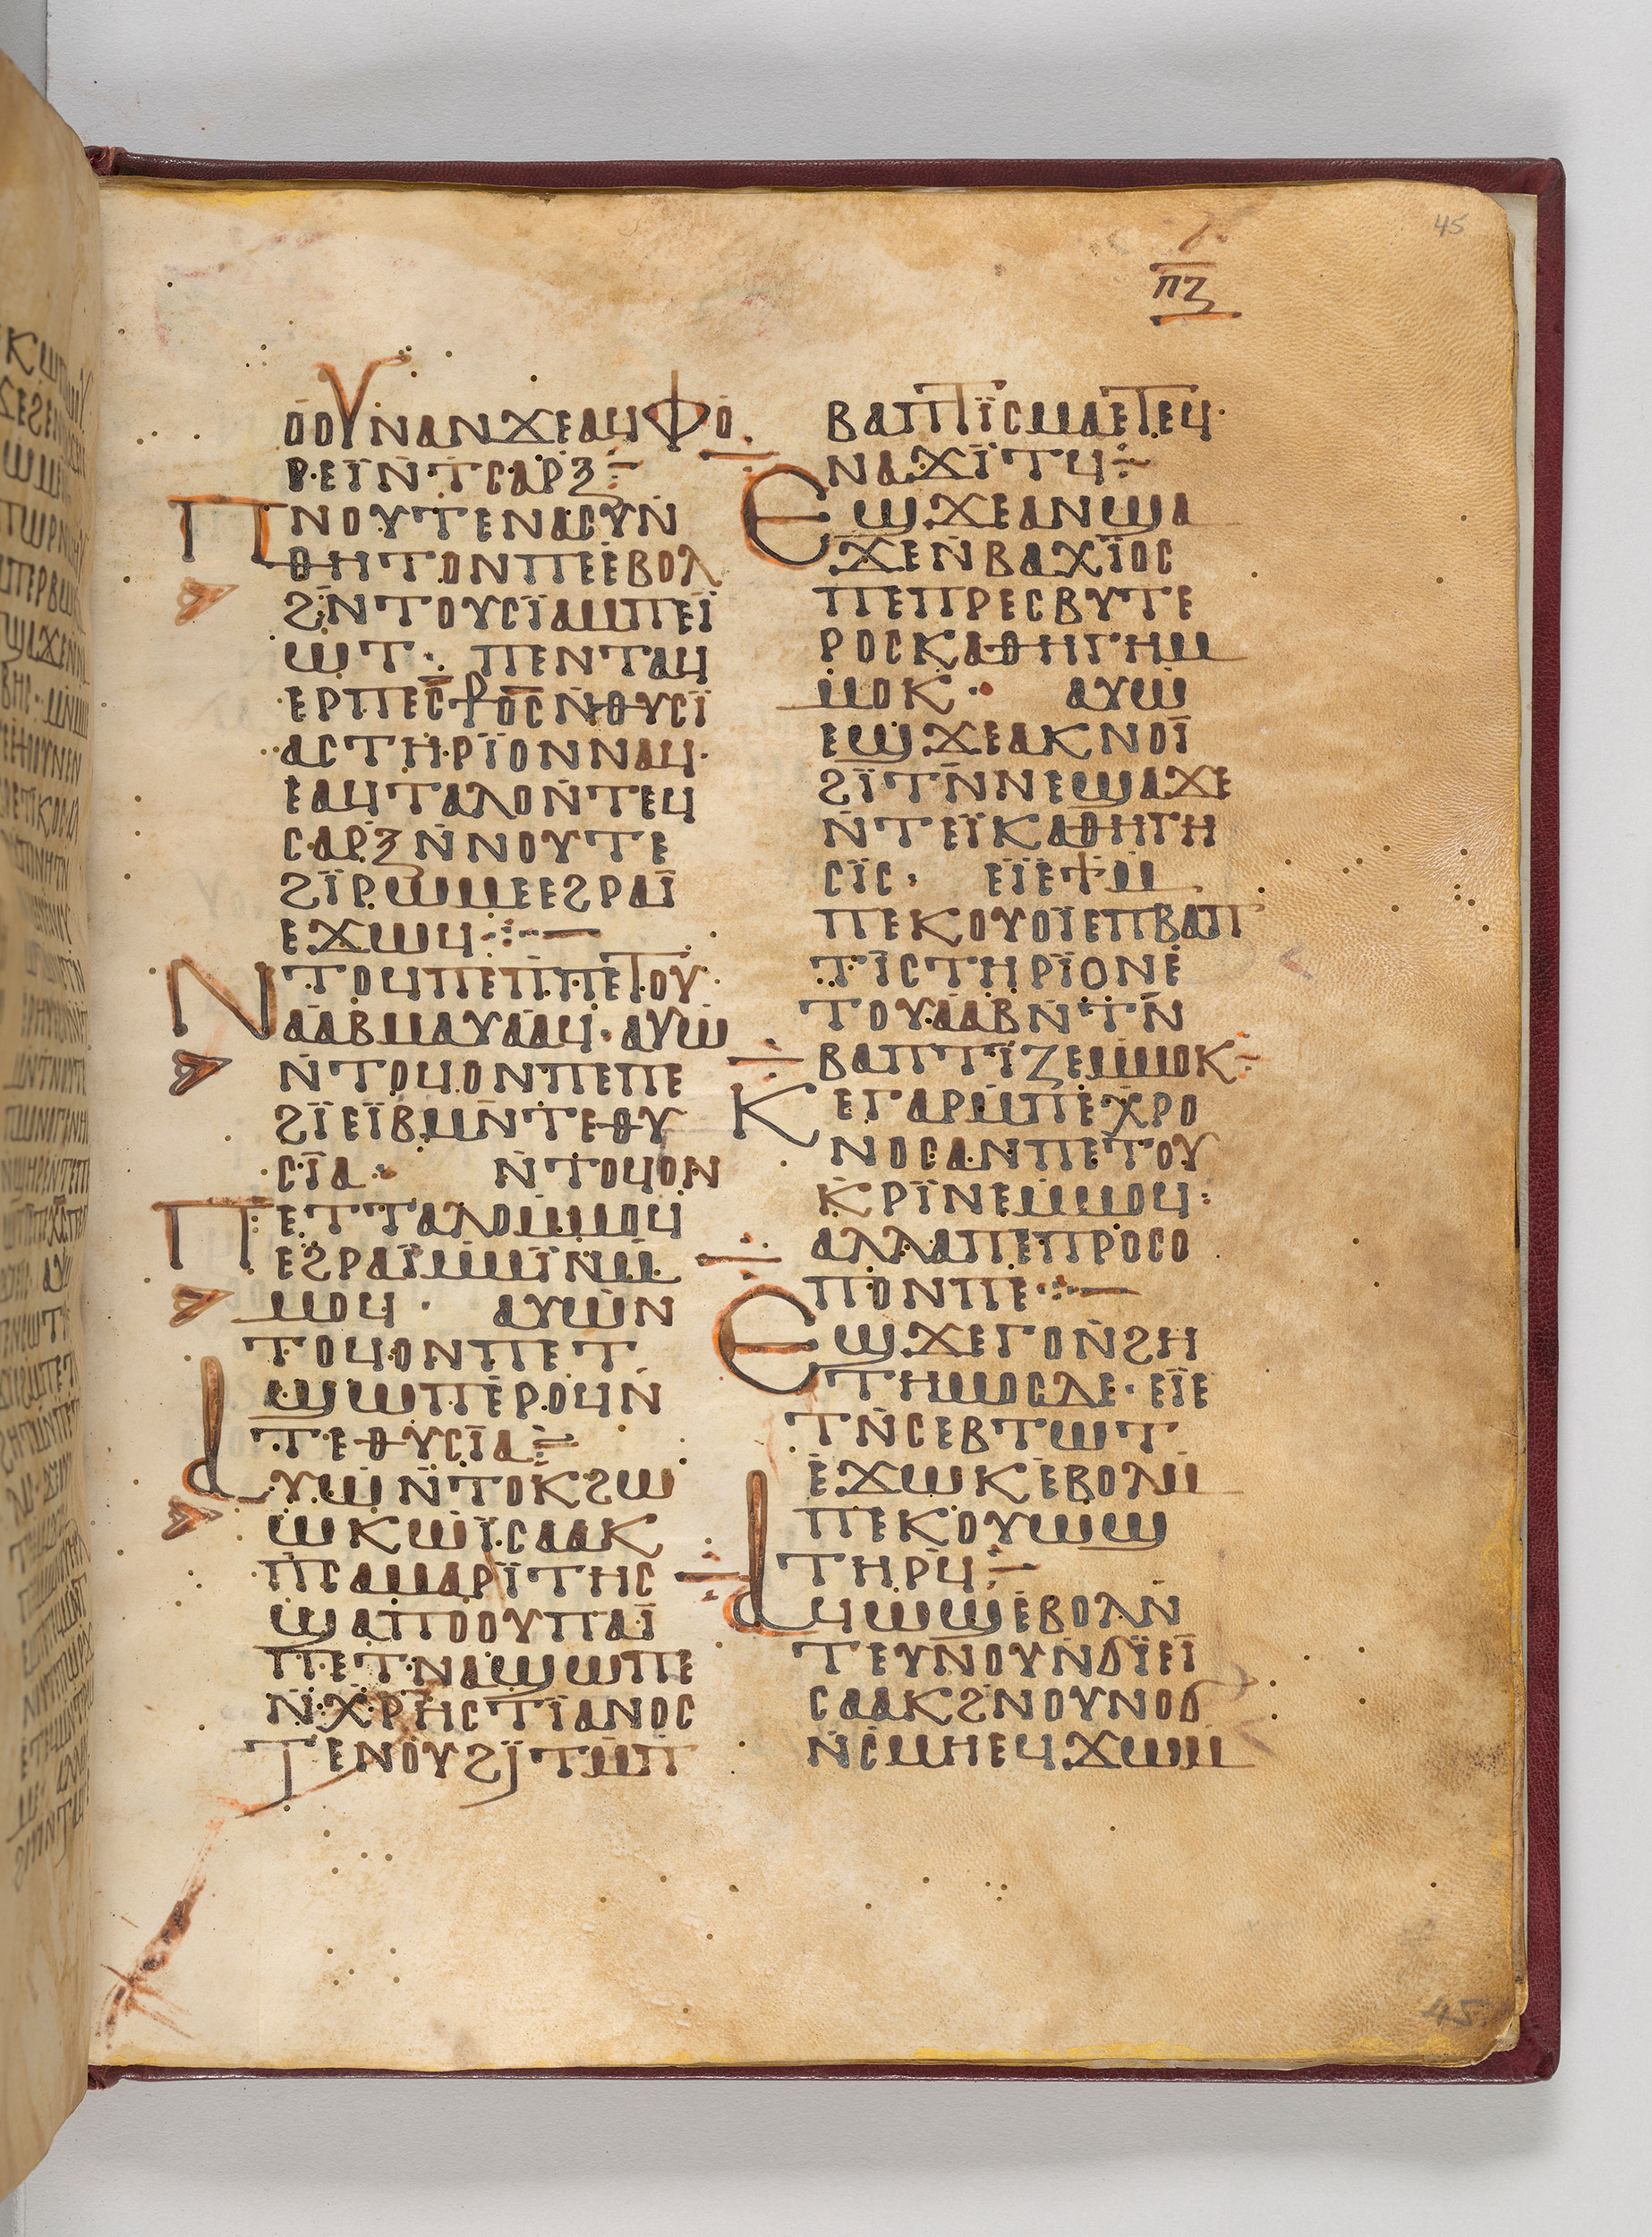 45
ⲡⲍ
ⲟⲟⲩⲛⲁⲛϫⲉⲁϥⲫⲟ
ⲣⲉⲓ̈ⲛ̇ⲧⲥⲁⲣⲝ÷
ⲡⲛⲟⲩⲧⲉⲛⲁⲥⲩⲛ
ⲑⲏⲧⲟⲛⲡⲉⲉⲃⲟⲗ
ϩⲛ̇ⲧⲟⲩⲥⲓ̈ⲁⲙⲡⲉⲓ̈
ⲱⲧ· ⲡⲉⲛⲧⲁϥ
ⲉⲣⲡⲉⲥⳁⲟⲥⲛ̇ⲑⲩⲥⲓ̈
ⲁⲥⲧⲏⲣⲓ̈ⲟⲛⲛⲁϥ·
ⲉⲁϥⲧⲁⲗⲟⲛ̇ⲧⲉϥ
ⲥⲁⲣⲝⲛ̇ⲛⲟⲩⲧⲉ
ϩⲓ̈ⲣⲱⲙⲉⲉϩⲣⲁⲓ̈
ⲉϫⲱϥ·:·—
ⲛⲧⲟϥⲡⲉⲡⲡⲉⲧⲟⲩ
ⲁⲁⲃⲙⲁⲩⲁⲁϥ·ⲁⲩⲱ
ⲛ̇ⲧⲟϥⲟⲛⲡⲉⲡⲉ
ϩⲓ̈ⲉⲓ̈ⲃⲙ̇ⲛ̇ⲧⲉⲑⲩ
ⲥⲓ̈ⲁ· ⲛ̇ⲧⲟϥⲟⲛ
ⲡⲉⲧⲧⲁⲗⲟⲙ̇ⲙⲟϥ
ⲉϩⲣⲁⲓ̈ⲙ̇ⲙⲓ̈ⲛⲙ̇
ⲙⲟϥ· ⲁⲩⲱⲛ̇
ⲧⲟϥⲟⲛⲡⲉⲧ
ϣⲱⲡⲉⲣⲟϥⲛ̇
ⲧⲉⲑⲩⲥⲓ̈ⲁ÷
ⲁⲩⲱⲛ̇ⲧⲟⲕϩⲱ
ⲱⲕⲱⲓ̈ⲥⲁⲁⲕ
ⲡⲥⲁⲙⲁⲣⲓ̈ⲧⲏⲥ
ϣⲁⲡⲟⲟⲩⲡⲁⲓ̈
ⲡⲉⲧⲛⲁϣⲱⲡⲉ
ⲛ̇ⲭⲣⲏⲥⲧⲓ̈ⲁⲛⲟⲥ
ⲧⲉⲛⲟⲩϩⲓ̈ⲧⲙ̇ⲡ
ⲃⲁⲡⲧⲓ̈ⲥⲙⲁⲉⲧⲉϥ·
ⲛⲁϫⲓ̈ⲧϥ÷
ⲉϣϫⲉⲁⲛϣⲁ
ϫⲉⲛ̇ⲃⲁⲭⲓ̈ⲟⲥ
ⲡⲉⲡⲣⲉⲥⲃⲩⲧⲉ
ⲣⲟⲥⲕⲁⲑⲏⲅⲏⲙ̇
ⲙⲟⲕ· ⲁⲩⲱ
ⲉϣϫⲉⲁⲕⲛⲟⲓ̈
ϩⲓ̈ⲧⲛ̇ⲛⲉϣⲁϫⲉ
ⲛ̇ⲧⲉⲓ̈ⲕⲁⲑⲏⲅⲏ
ⲥⲓ̈ⲥ· ⲉⲓ̈ⲉϯⲙ̇
ⲡⲉⲕⲟⲩⲟⲓ̈ⲉⲡⲃⲁⲡ
ⲧⲓ̈ⲥⲧⲏⲣⲓ̈ⲟⲛⲉ
ⲧⲟⲩⲁⲁⲃⲛ̇ⲧⲛ̇
ⲃⲁⲡⲧⲓ̈ⲍⲉⲙ̇ⲙⲟⲕ÷
ⲕⲉⲅⲁⲣⲙ̇ⲡⲉⲭⲣⲟ
ⲛⲟⲥⲁⲛⲡⲉⲧⲟⲩ
ⲕⲣⲓ̈ⲛⲉⲙ̇ⲙⲟϥ:
ⲁⲗⲗⲁⲡⲉⲡⲣⲟⲥⲟ
ⲡⲟⲛⲡⲉ·:·—
ⲉϣϫⲉⲅⲟⲛ̇ϩⲏ
ⲧⲏⲙⲟⲥⲇⲉ·ⲉⲓ̈ⲉ
ⲧⲛ̇ⲥⲉⲃⲧⲱⲧ
ⲉϫⲱⲕⲉⲃⲟⲗⲙ̇
ⲡⲉⲕⲟⲩⲱϣ
ⲧⲏⲣϥ÷
ⲁϥⲱϣⲉⲃⲟⲗⲛ̇
ⲧⲉⲩⲛⲟⲩⲛ̇ϭⲓ̈ⲉⲓ̈
ⲥⲁⲁⲕϩⲛⲟⲩⲛⲟϭ
ⲛ̇ⲥⲙⲏⲉϥϫⲱⲙ̇
45